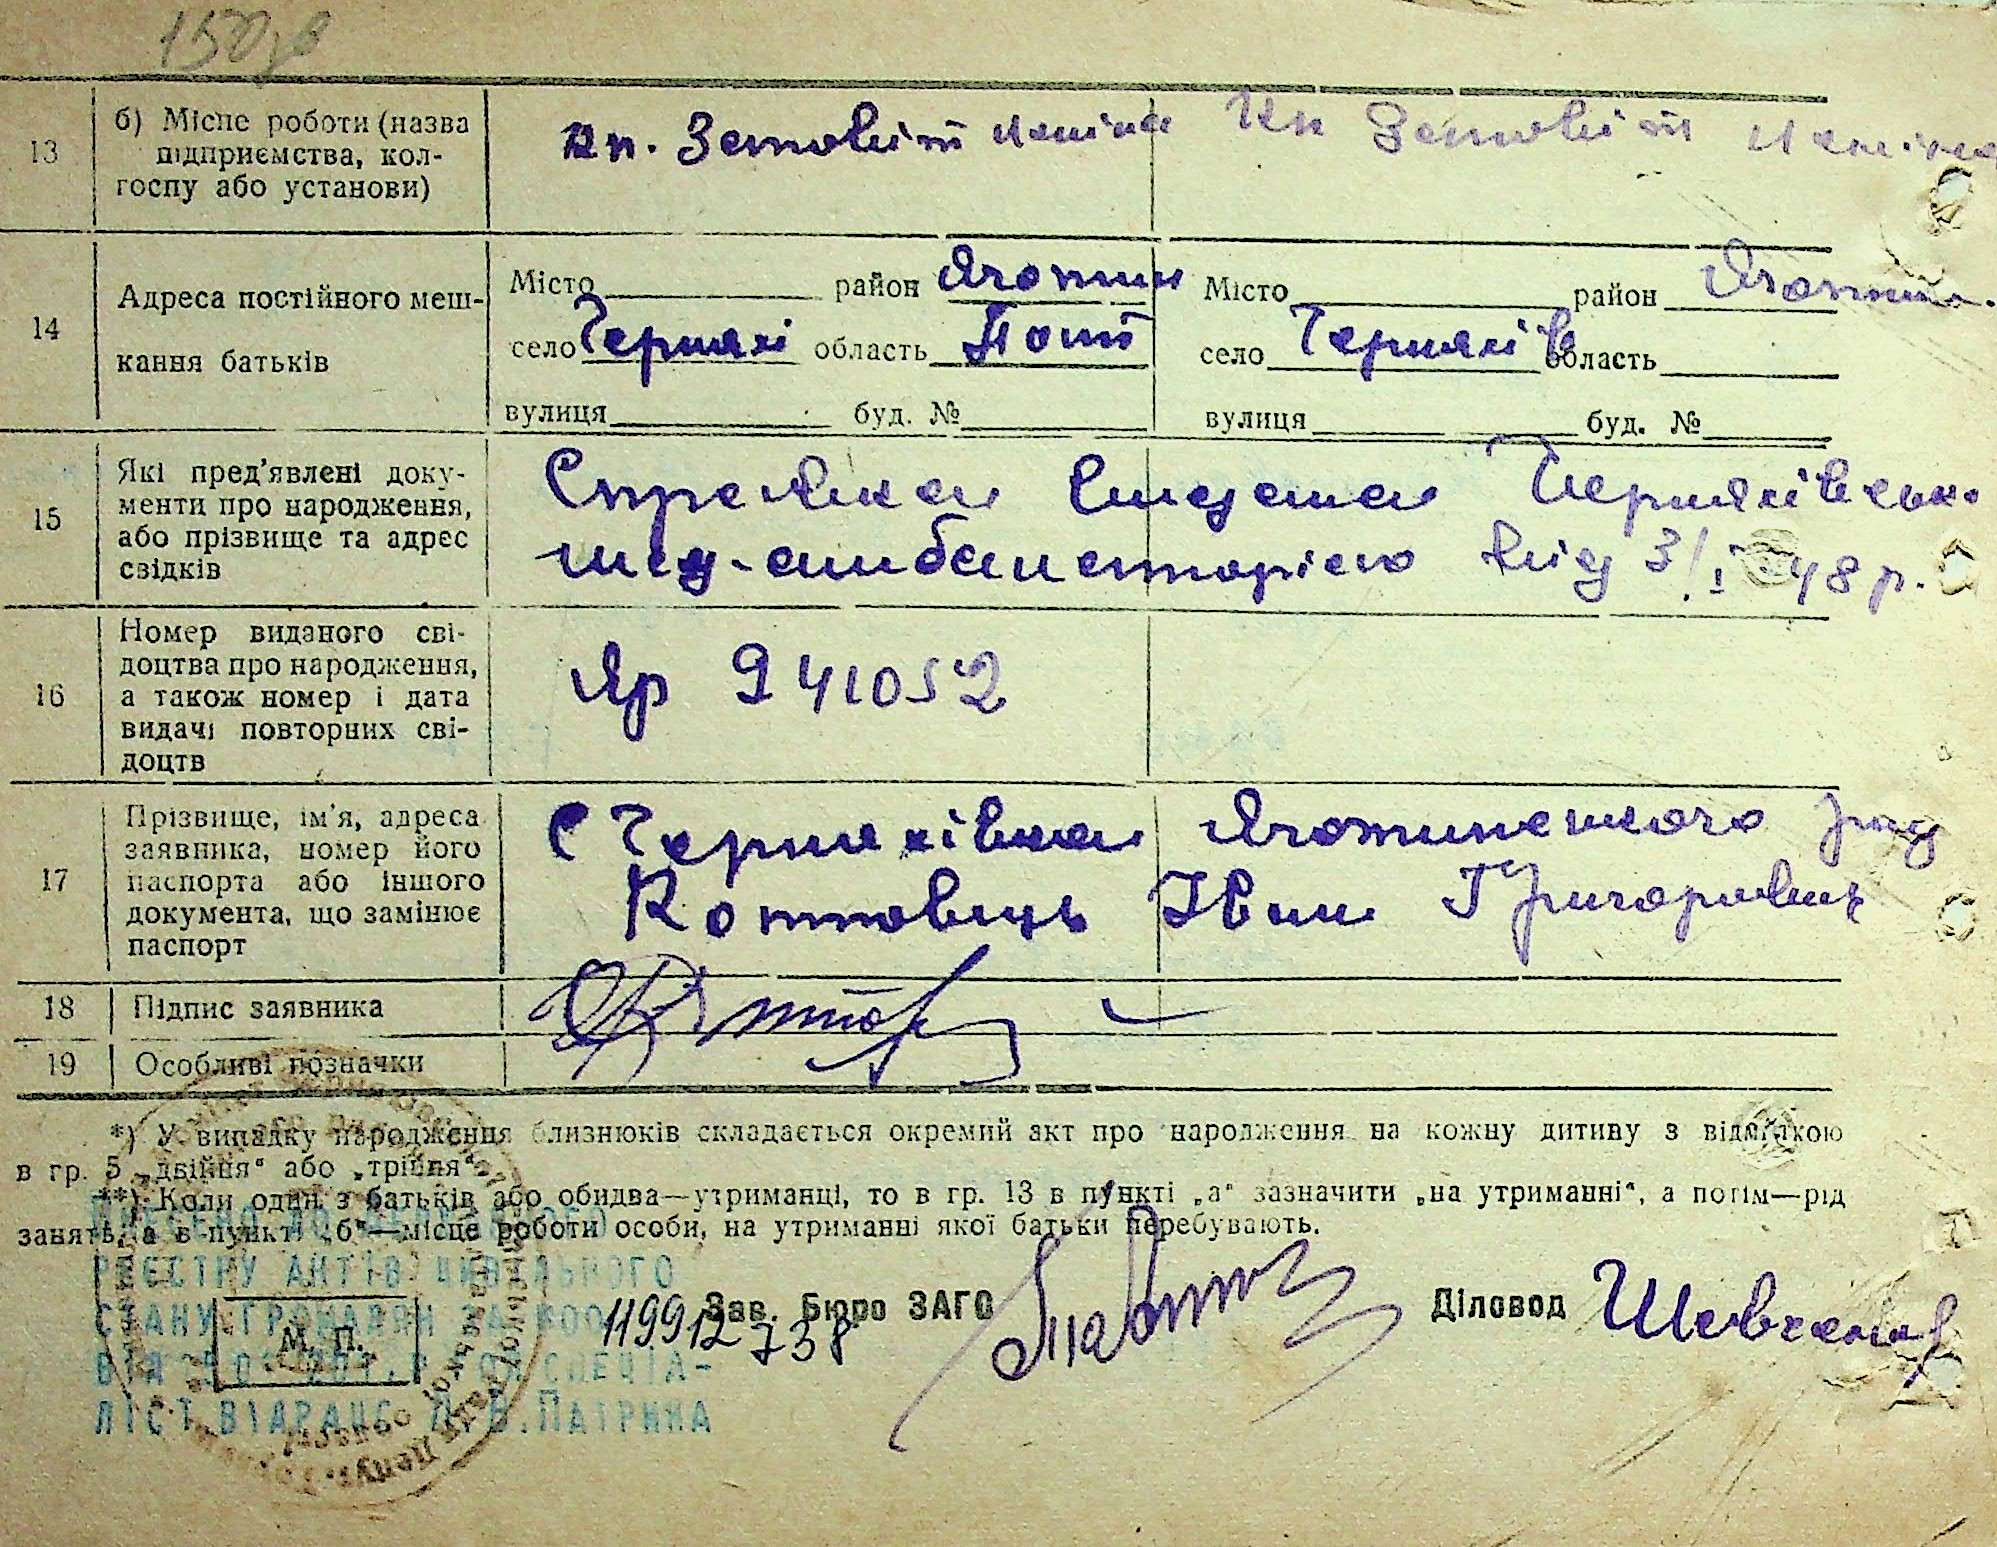 150
13 б) Місце роботи (назва підприємства, колгоспу або установи)
Кп. Заповіт Леніна
Кп Заповіт Леніна
14 Адреса постійного мешкання батьків
Місто район Яготин
село Черняхі область Полт
вулиця буд. №
Місто район Яготин.
село Черняхів область
вулиця буд. №
15 Які пред'явлені документи про народження, або прізвище та адрес свідків
Справка видана Черняхівськ.
мед-амбапеторією від 3/I 48 р.
16 Номер виданого свідоцтва про народження, а також номер і дата видачі повторних свідоцтв
Яр 941052
17 Прізвище, ім'я, адреса заявника, номер його паспорта або іншого документа, що замінює паспорт
С Черняхівка Яготинського рад
Коптовець Іван Григорович
18 Підпис заявника
19 Особливі позначки
*) У випадку народження близнюків складається окремий акт про народження на кожну дитину з відміткою
в гр. 5 „двійня“ або „трійня“.
**) Коли один з батьків або обидва—утриманці, то в гр. 13 в пункті „а“ зазначити „на утриманні“, а потім—рід
занять, а в пункті „б“—місце роботи особи, на утриманні якої батьки перебувають.
РЕЄСТРУ АКТІВ ЦИВІЛЬНОГО
СТАНУ ГРОМАДЯН ЗА
СПЕЦІА-
ЛІСТ ВІДРАЦС В.ПАТРИНА
М. П.
119912738
Зав. Бюро ЗАГС
Діловод Шевченко